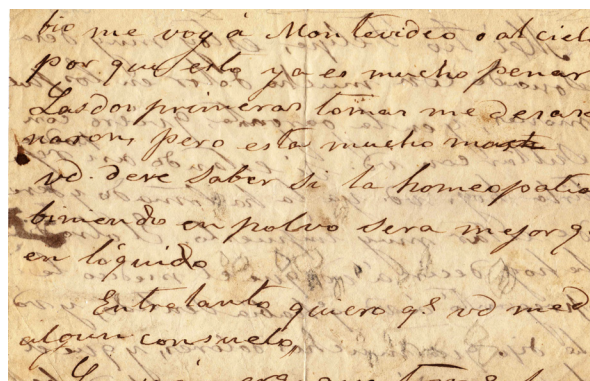 bio me voy á Montevideo o al ciel
por que esto ya es mucho penar
Las dos primeras tomas me desazo
naron, pero esta mucho mas
vd. deve saber si la homeopatia
biniendo en polvo sera mejor q
en líquido
Entretanto quiero q.e vd me d
algun consuelo,